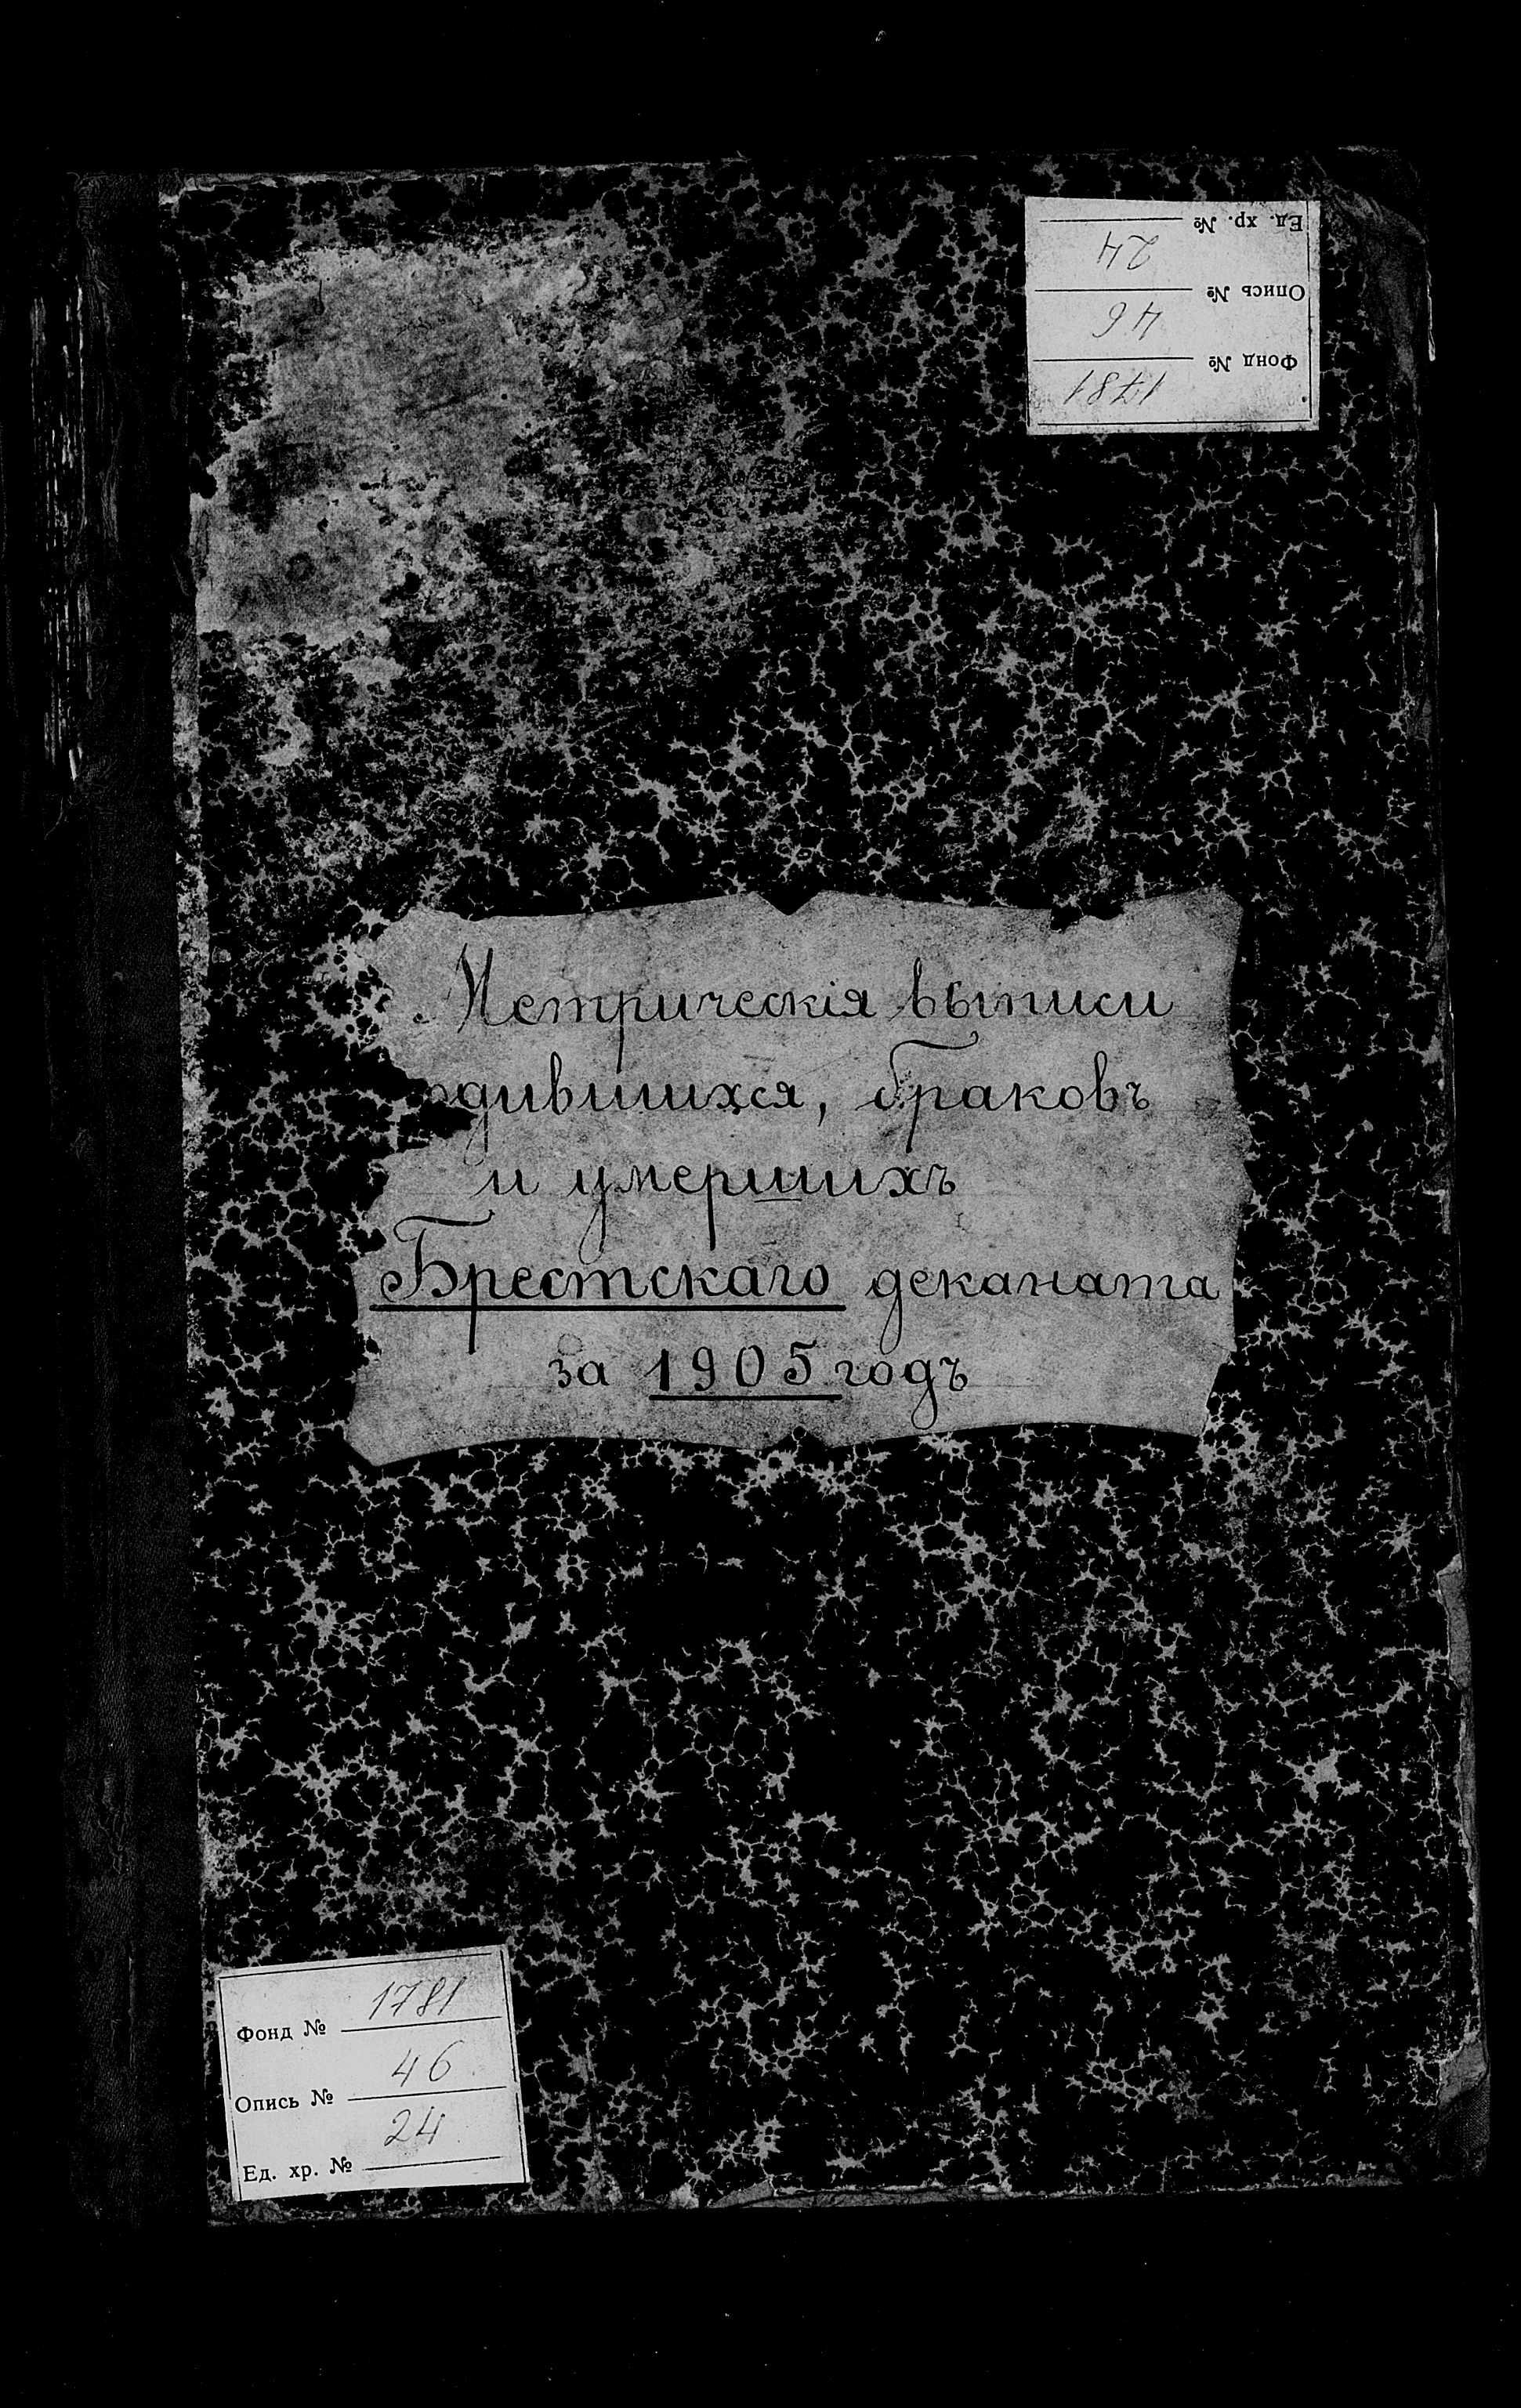 Ед. хр. №
24
Опись №
46
Фонд №
1781
Метрическія выписи
одившихся, браковъ
и умершихъ
Брестскаго деканата
за 1905 годъ
Фонд № 1781
Опись № 46
Ед. хр. № 24